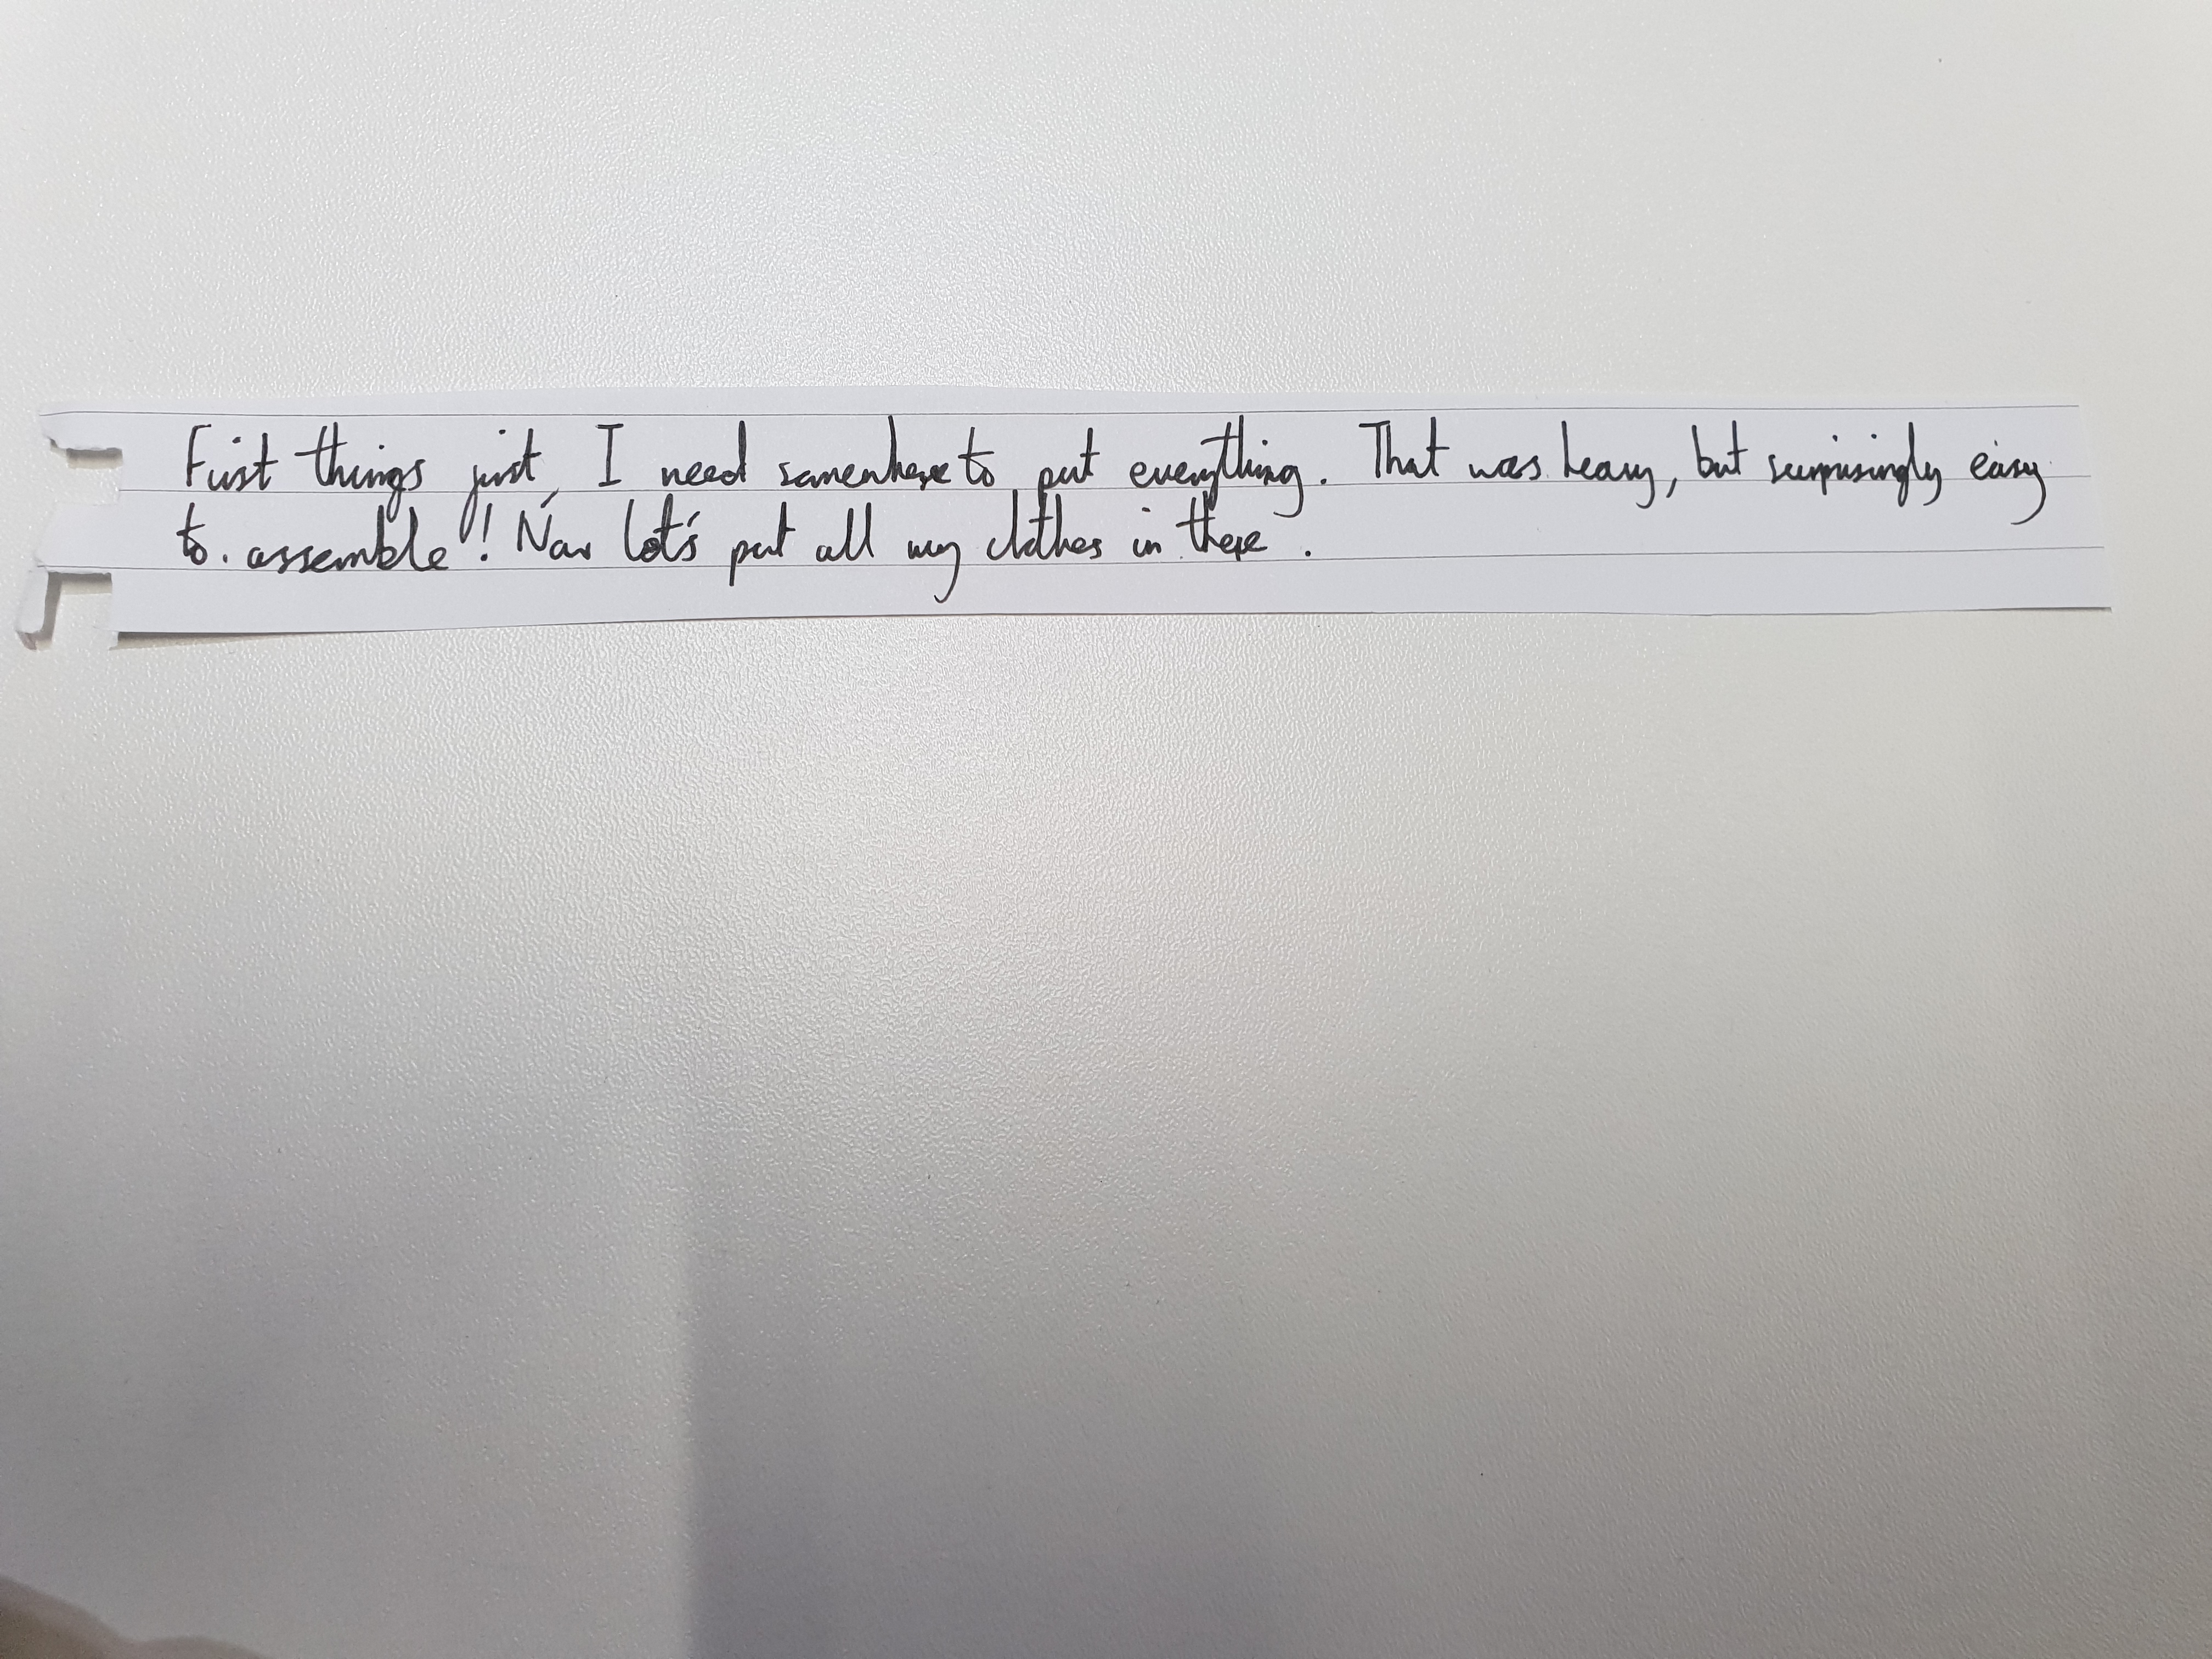 First things just I need somewhere to put everything. That was heavy, but surprisingly easy
to. assemble! Now let's put all my clothes in there.